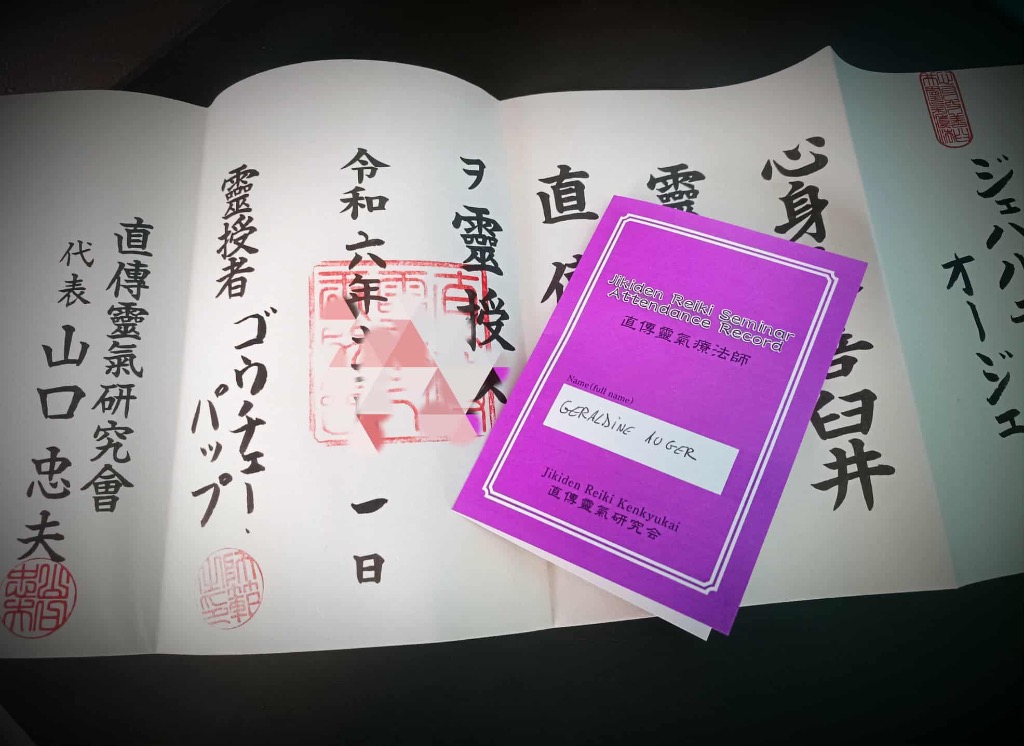 オージェ
心身
臼井
靈
直
ヲ靈授
令和六年
一日
靈授者
ゴウチェー、
パップ
直傳靈氣研究會
代表 山口忠夫
Jikiden Reiki Seminar
Attendance Record
直傳靈氣療法師
Name(full name)
GERALDINE AUGER
Jikiden Reiki Kenkyukai
直傳靈氣研究会